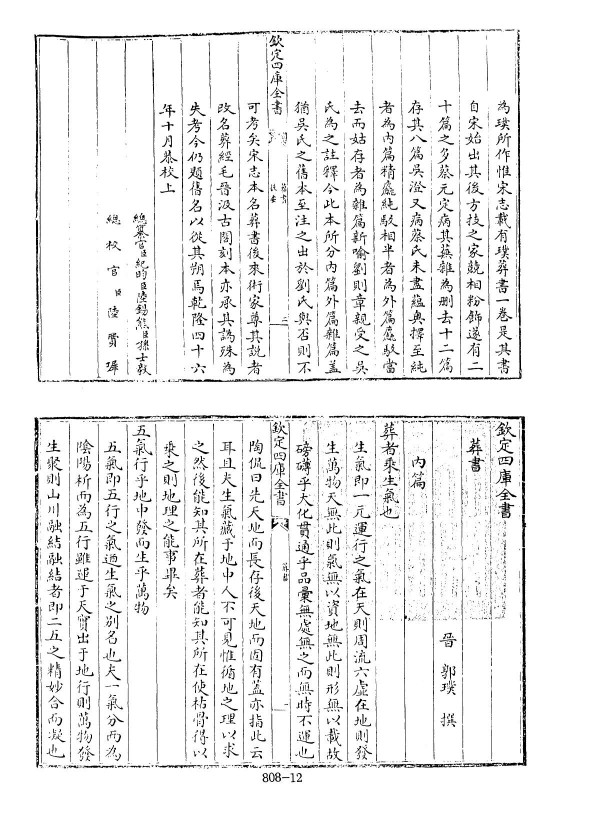 為璞所作惟宋志載有璞葬書一卷是其書
自宋始出其後方技之家競相粉飾遂有二
十篇之多蔡元定病其蕪雜為刪去十二篇
存其八篇吳澄又病蔡氏未盡蘊奧擇至純
者為內篇精麤純駁相半者為外篇麤駁當
去而姑存者為雜篇新喻劉則章親受之吳
氏為之註釋今此本所分內篇外篇雜篇蓋
猶吳氏之舊本至注之出於劉氏與否則不
欽定四庫全書
葬書
提要
二
可考矣宋志本名葬書後來術家尊其説者
改名葬經毛晉汲古閣刻本亦承其譌殊為
失考今仍題舊名以從其朔焉乾隆四十六
年十月恭校上
總纂官臣紀昀臣陸錫熊臣孫士毅
總校官臣陸費墀
欽定四庫全書
葬書
晉 郭璞 撰
內篇
葬者乘生氣也
生氣即一元運行之氣在天則周流六虛在地則發
生萬物天無此則氣無以資地無此則形無以載故
磅礴乎大化貫通乎品彙無處無之而無時不運也
欽定四庫全書
葬書
一
陶侃曰先天地而長存後天地而固有蓋亦指此云
耳且夫生氣藏于地中人不可見惟循地之理以求
之然後能知其所在葬者能知其所在使枯骨得以
乘之則地理之能事畢矣
五氣行乎地中發而生乎萬物
五氣即五行之氣廼生氣之別名也夫一氣分而為
陰陽析而為五行雖運于天實出于地行則萬物發
生聚則山川融結融結者即二五之精妙合而凝也
808-12